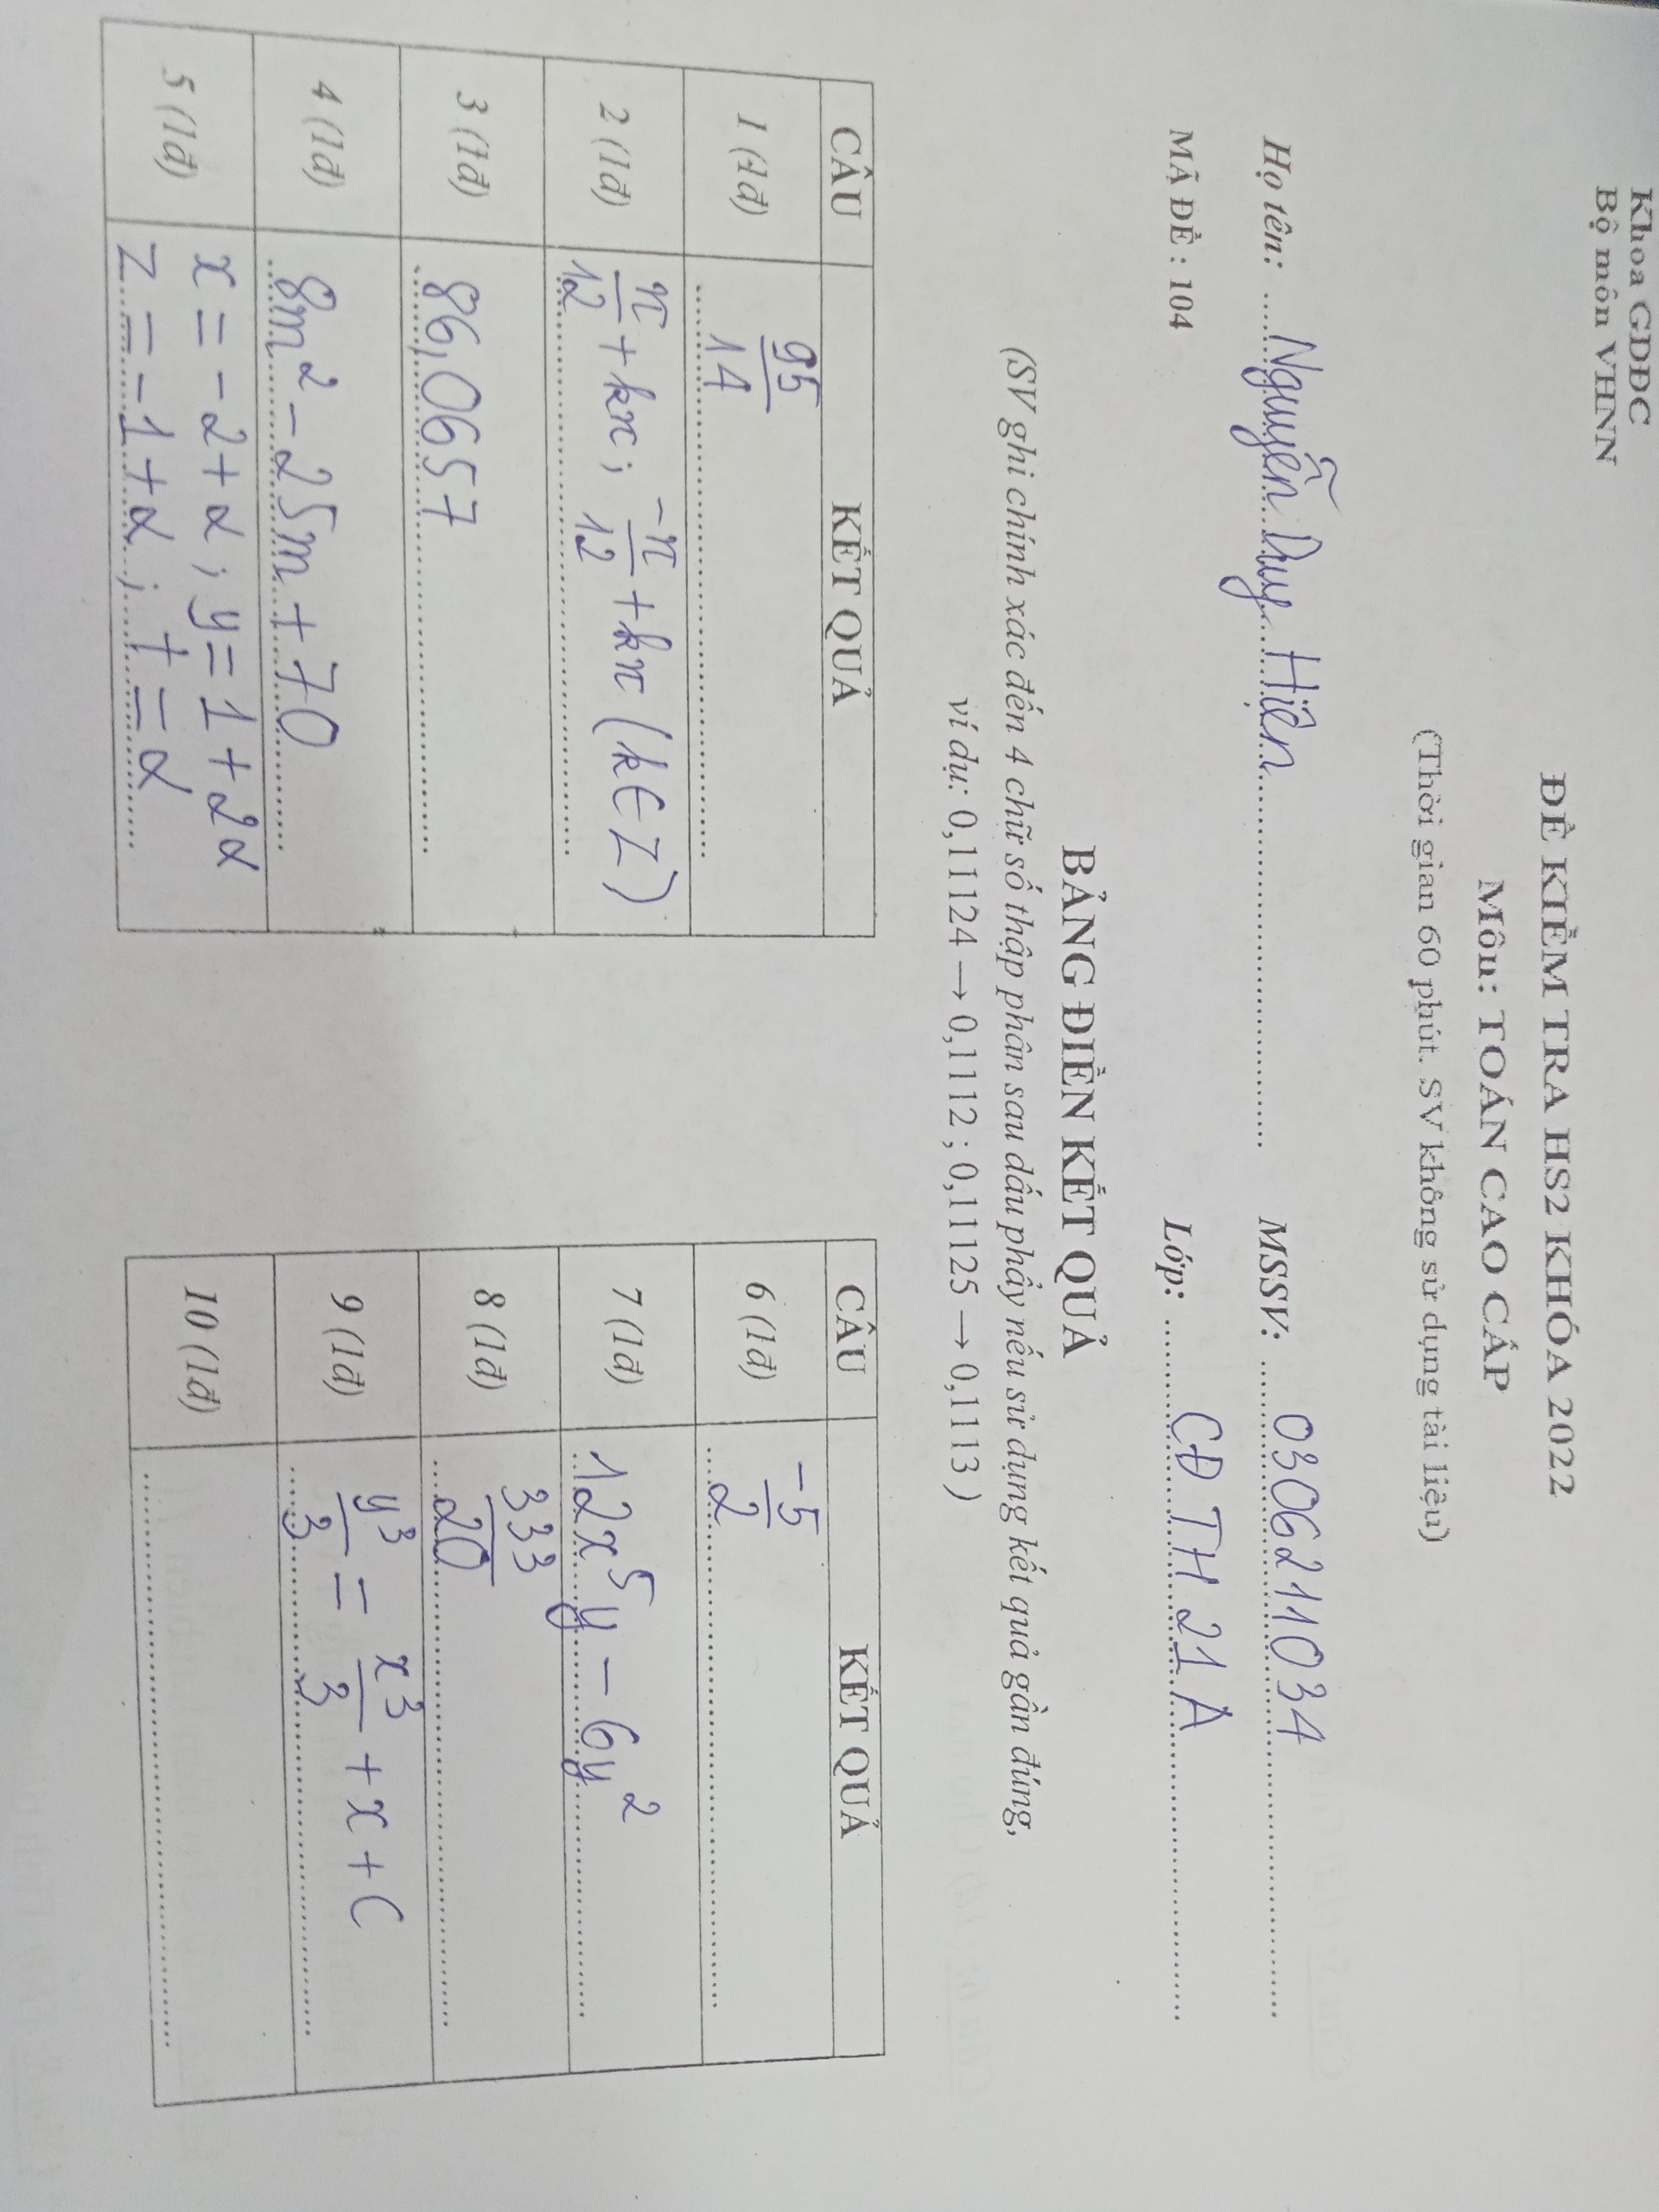 Khoa GDĐC
Bộ môn VHNN
ĐỀ KIỂM TRA HS2 KHÓA 2022
Môn: TOÁN CAO CẤP
(Thời gian 60 phút. SV không sử dụng tài liệu)
Họ tên: Nguyễn Duy Hiện MSSV: 0306211034
MÃ ĐỀ : 104 Lớp: CĐ TH 21 A
BẢNG ĐIỀN KẾT QUẢ
(SV ghi chính xác đến 4 chữ số thập phân sau dấu phẩy nếu sử dụng kết quả gần đúng,
ví dụ: 0,11124 → 0,1112 ; 0,11125 → 0,1113 )
CÂU KẾT QUẢ
1 (1đ) 95/14
2 (1đ) π/12 + kπ ; -π/12 + kπ (k∈Z)
3 (1đ) 86,0657
4 (1đ) 8m² - 25m + 70
5 (1đ) x = -2 + α ; y = 1 + 2α
z = -1 + α ; t = α
CÂU KẾT QUẢ
6 (1đ) -5/2
7 (1đ) 12x⁵y - 6y²
8 (1đ) 333/20
9 (1đ) y³/3 = x³/3 + x + C
10 (1đ)